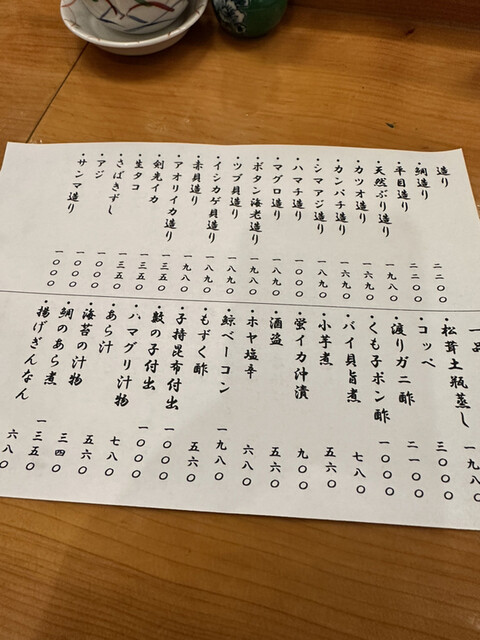 造り
・鯛造り 二二〇〇
・平目造り 二二〇〇
・天然ぶり造り 一九八〇
・カツオ造り 一六九〇
・カンパチ造り 一六九〇
・シマアジ造り 一九八〇
・ハマチ造り 一〇〇〇
・マグロ造り 一九八〇
・ボタン海老造り 一九八〇
・ツブ貝造り 一八九〇
・イシカゲ貝造り 一八九〇
・赤貝造り 一八九〇
・アオリイカ造り 一九八〇
・剣先イカ 一三五〇
・生タコ 一三五〇
・さばきずし 一三五〇
・アジ 一〇〇〇
・サンマ造り 一〇〇〇
一品
・松茸土瓶蒸し 一九八〇
・コッペ 三〇〇〇
・渡りガニ酢 二一〇〇
・くも子ポン酢 一〇〇〇
・バイ貝旨煮 七八〇
・小芋煮 五六〇
・蛍イカ沖漬 九〇〇
・酒盗 五六〇
・ホヤ塩辛 六八〇
・鯨ベーコン 一九八〇
・もずく酢 五六〇
・子持昆布付出 一〇〇〇
・数の子付出 一〇〇〇
・ハマグリ汁物 七八〇
・あら汁 五六〇
・海苔の汁物 三四〇
・鯛のあら煮 一三五〇
・揚げぎんなん 六八〇